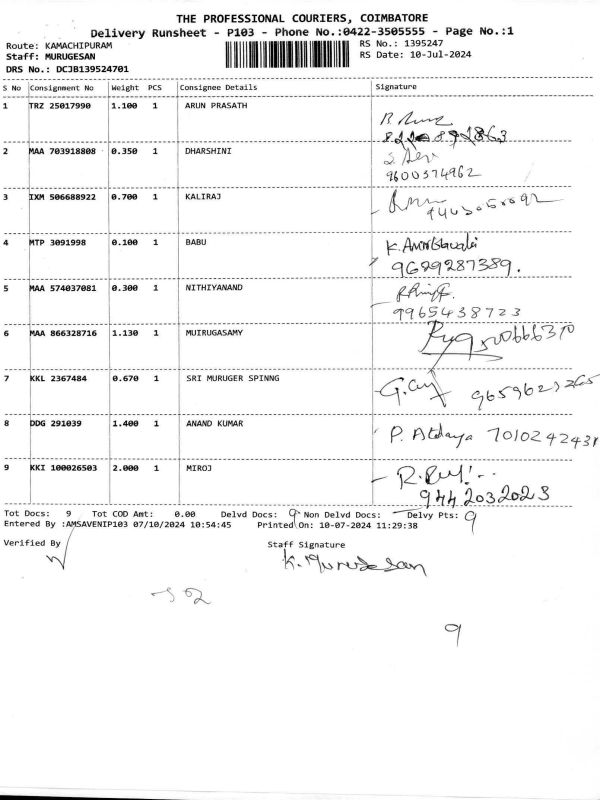 THE PROFESSIONAL COURIERS, COIMBATORE
Delivery Runsheet - P103 - Phone No.:0422-3505555 - Page No.:1
Route: KAMACHIPURAM RS No.: 1395247
Staff: MURUGESAN RS Date: 10-Jul-2024
DRS No.: DCJB139524701
S No Consignment No Weight PCS Consignee Details Signature
1 TRZ 25017990 1.100 1 ARUN PRASATH
2 MAA 703918808 0.350 1 DHARSHINI
9600374962
3 IXM 506688922 0.700 1 KALIRAJ
4 MTP 3091998 0.100 1 BABU
9629287389.
5 MAA 574037081 0.300 1 NITHIYANAND
9965438723
6 MAA 866328716 1.130 1 MUIRUGASAMY
7 KKL 2367484 0.670 1 SRI MURUGER SPINNG
8 DDG 291039 1.400 1 ANAND KUMAR P. 7010242431
9 KKI 100026503 2.000 1 MIROJ
9442032023
Tot Docs: 9 Tot COD Amt: 0.00 Delvd Docs: 9 Non Delvd Docs: Delvy Pts: 9
Entered By :AMSAVENIP103 07/10/2024 10:54:45 Printed On: 10-07-2024 11:29:38
Verified By Staff Signature
K. Murugesan
9